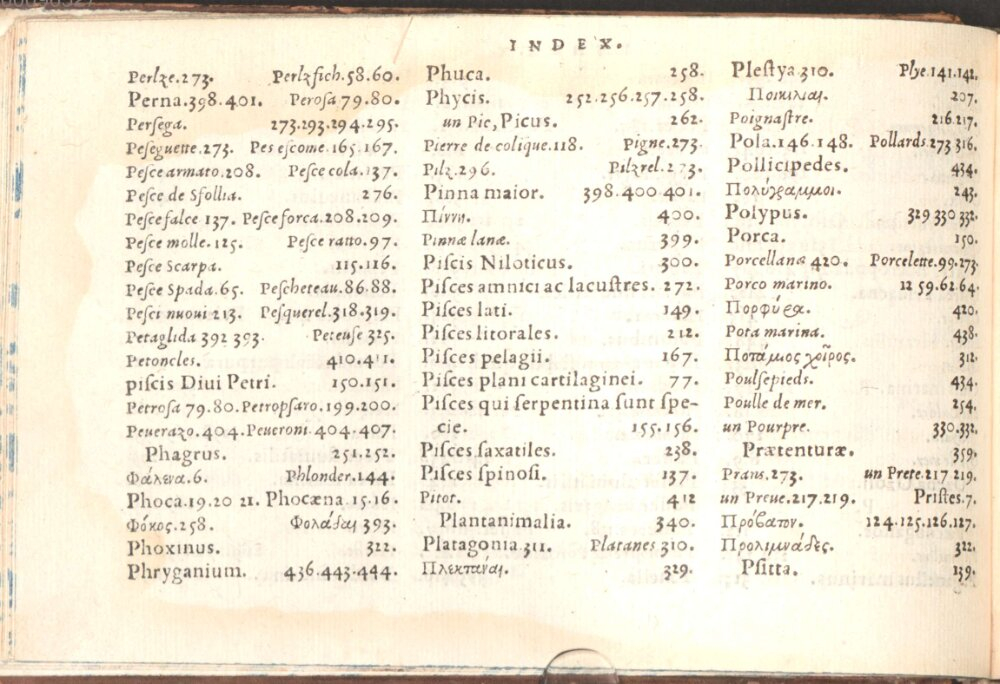 INDEX.
Perlze.273. Perlzfich.58.60.
Perna.398.401. Perosa 79.80.
Persega. 273.293.294.295.
Peseguette.273. Pes escome.165.167.
Pesce armato.208. Pesce cola.137.
Pesce de Sfollia. 276.
Pesce falce 137. Pesce forca.208.209.
Pesce molle.125. Pesce ratto.97.
Pesce Scarpa. 115.116.
Pesce Spada.65. Pescheteau.86.88.
Pesci nuoui 213. Pesquerel.318.319.
Petaglida 392 393. Peteuse 325.
Petoncles. 410.411.
piſcis Diui Petri. 150.151.
Petrosa 79.80. Petropsaro.199.200.
Peuerazo.404. Peueroni.404.407.
Phagrus. 251.252.
Φάλενα.6. Phlonder.144.
Phoca.19.20 21. Phocæna.15.16.
Φόκος.258. Φολάδαι 393.
Phoxinus. 322.
Phryganium. 436.443.444.
Phuca. 258.
Phycis. 252.256.257.258.
un Pie, Picus. 262.
Pierre de colique.118. Pigne.273.
Pilz.296. Pilzrel.273.
Pinna maior. 398.400.401.
Πίννη. 400.
Pinnæ lanæ. 399.
Piſcis Niloticus. 300.
Piſces amnici ac lacuſtres. 272.
Piſces lati. 149.
Piſces litorales. 212.
Piſces pelagii. 167.
Piſces plani cartilaginei. 77.
Piſces qui ſerpentina ſunt ſpe-
cie. 155.156.
Piſces ſaxatiles. 238.
Piſces ſpinoſi. 137.
Pitor. 412
Plantanimalia. 340.
Platagonia.311. Platanes 310.
Πλεκτάναι. 329.
Pleſtya.310. Plye.141.142.
Ποικιλίαι. 207.
Poignastre. 216.217.
Pola.146.148. Pollards.273 316.
Pollicipedes. 434.
Πολύγραμμοι. 243.
Polypus. 329 330 332.
Porca. 150.
Porcellana 420. Porcelette.99.273.
Porco marino. 12 59.62.64.
Πορφύρα. 420.
Pota marina. 438.
Ποτάμιος χοῖρος. 312.
Poulsepieds. 434.
Poulle de mer. 254.
un Pourpre. 330.332.
Prætenturæ. 359.
Prans.273. un Prete.217 219.
un Preue.217.219. Priſtes.7.
Πρόβατον. 124.125.126.127.
Προλιμνάδες. 322.
Pſitta. 139.